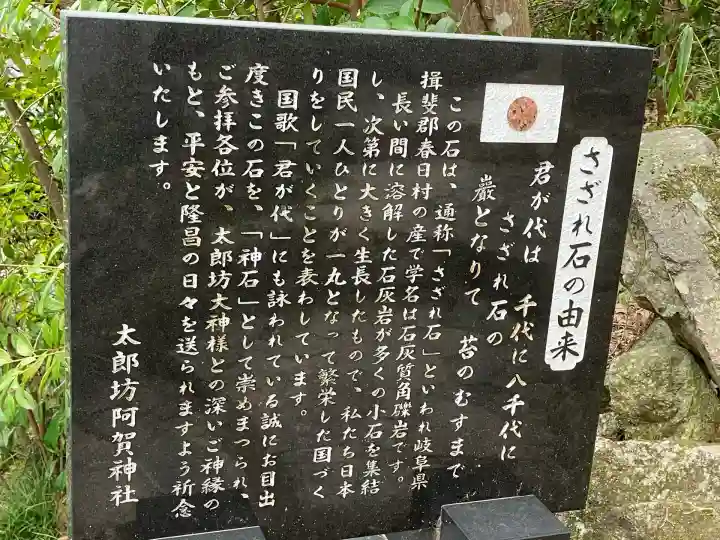 さざれ石の由来
君が代は 千代に八千代に
さざれ石の
巖となりて 苔のむすまで
この石は、通称「さざれ石」といわれ岐阜県
揖斐郡春日村の産で学名は石灰質角礫岩です。
長い間に溶解した石灰岩が多くの小石を集結
し、次第に大きく生長したもので、私たち日本
国民一人ひとりが一丸となって繁栄した国づく
りをしていくことを表わしています。
国歌「君が代」にも詠われている誠にお目出
度きこの石を、「神石」として崇めまつられ、
ご参拝各位が、太郎坊大神様との深いご神縁の
もと、平安と隆昌の日々を送られますよう祈念
いたします。
太郎坊阿賀神社